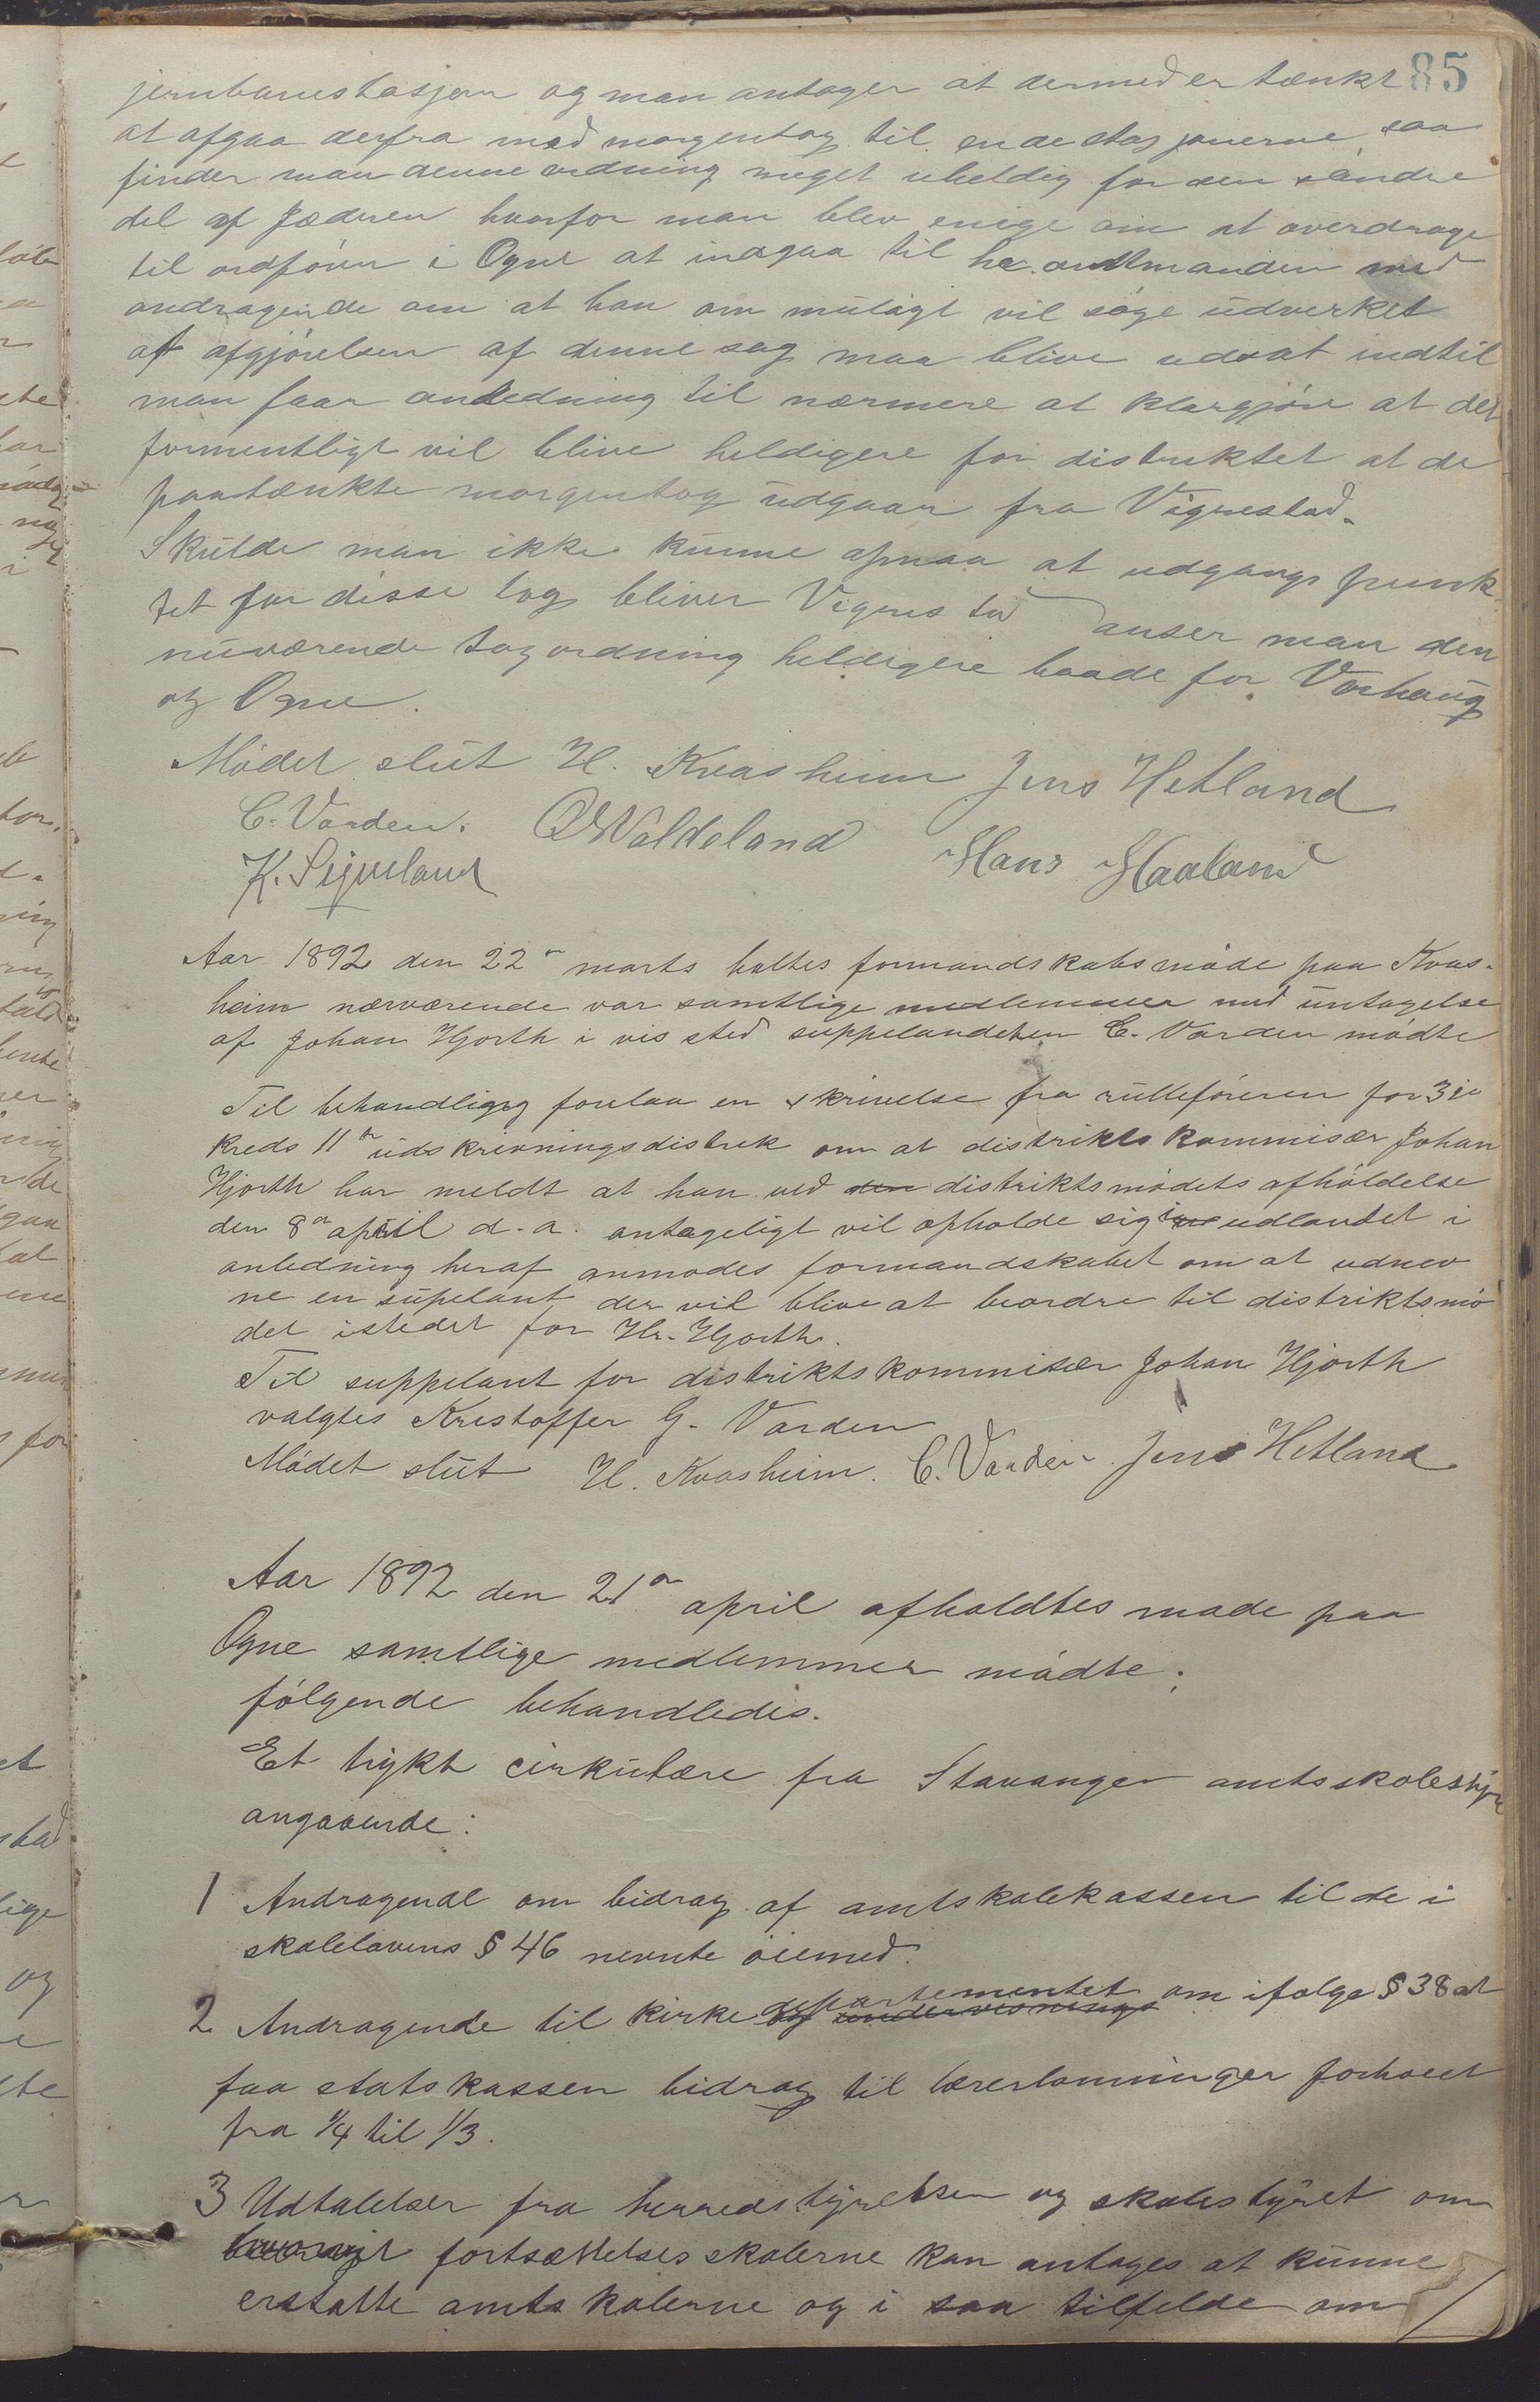 85
jernbanestasjon og man antager at dermed er tænkt
at afgaa derfra med morgentog til endestasjonerne, saa
finder man denne ordning meget uheldig for den søndre
del af Jæderen hvorfor man blev enige om at overdrage
til ordføren i Ogne at indgaa til hr. amtmanden med
andragende om at han om muligt vil søge udverket
at afgjørelsen af denne sag maa blive udsat indtil
man faar anledning til nærmere at klargjøre at det
formentligt vil blive heldigere for distriktet at de
paatænkte morgentog udgaar fra Vigrestad.
Skulde man ikke kunne opnaa at udgangspunk
tet for disse tog bliver Vigrestad anser man den
nuværende togordning heldigere baade for Varhaug
og Ogne.
Mødet slut H. Kvasheim Jens Hetland
C. Varden. O Valdeland Hans Haaland
K. Sirevland
Aar 1892 den 22n marts holtes formandskabsmøde paa Kvas-
heim nærværende var samtlige medlemmer med untagelse
af Johan Hjorth i vis sted suppelandeten C. Varden mødte
Til behandligng forelaa en skrivelse fra rulleføreren for 3je
kreds 11te udskrivningsdistrik om at distriktskommisær Johan
Hjorth har meldt at han ved den distriktsmødets afholdelse
den 8n april d. a. antageligt vil opholde sig i udlandet i
anledning heraf anmodes formandskabet om at udnev
ne en supelant der vil blive at beordre til distriktsmø
det istedet for Hr. Hjorth.
Til suppelant for distriktskommisær Johan Hjorth
valgtes Kristoffer G. Varden
Mødet slut H. Kvasheim. C. Varden Jens Hetland
Aar 1892 den 21n april afholdtes møde paa
Ogne samtlige medlemmer mødte;
følgende behandledes.
Et trykt cirkulære fra Stavanger amtsskolestyre
angaaende:
1 Andragende om bidrag af amtskolekassen til de i
skolelovens § 46 nevnte øiemed.
2 Andragende til kirke og undervisnings departementet om ifølge § 38 at
faa statskassen bidrag til lærerlønninger forhøiet
fra 1/4 til 1/3.
3 Udtalelser fra herredstyrelsen og skolestyret om
hvorvidt fortsættelsesskolerne kan antages at kunne
erstatte amtskolerne og i saa tilfelde om